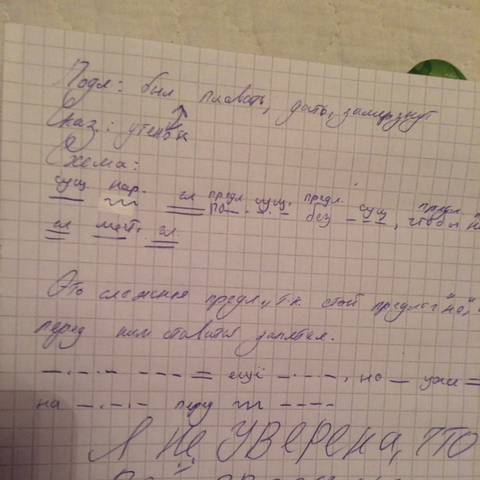 Подл: был плавать, дать, замерзнут
Сказ.: утенок
Схема:
сущ нар. гл предл по сущ. предл. без сущ, предл. чтобы не
гл мест. гл.
Это сложная предл., т.к. стой предлог "но",
перед ним ставится запятая.
ещё , но уже
на перу
Я не уверена, что